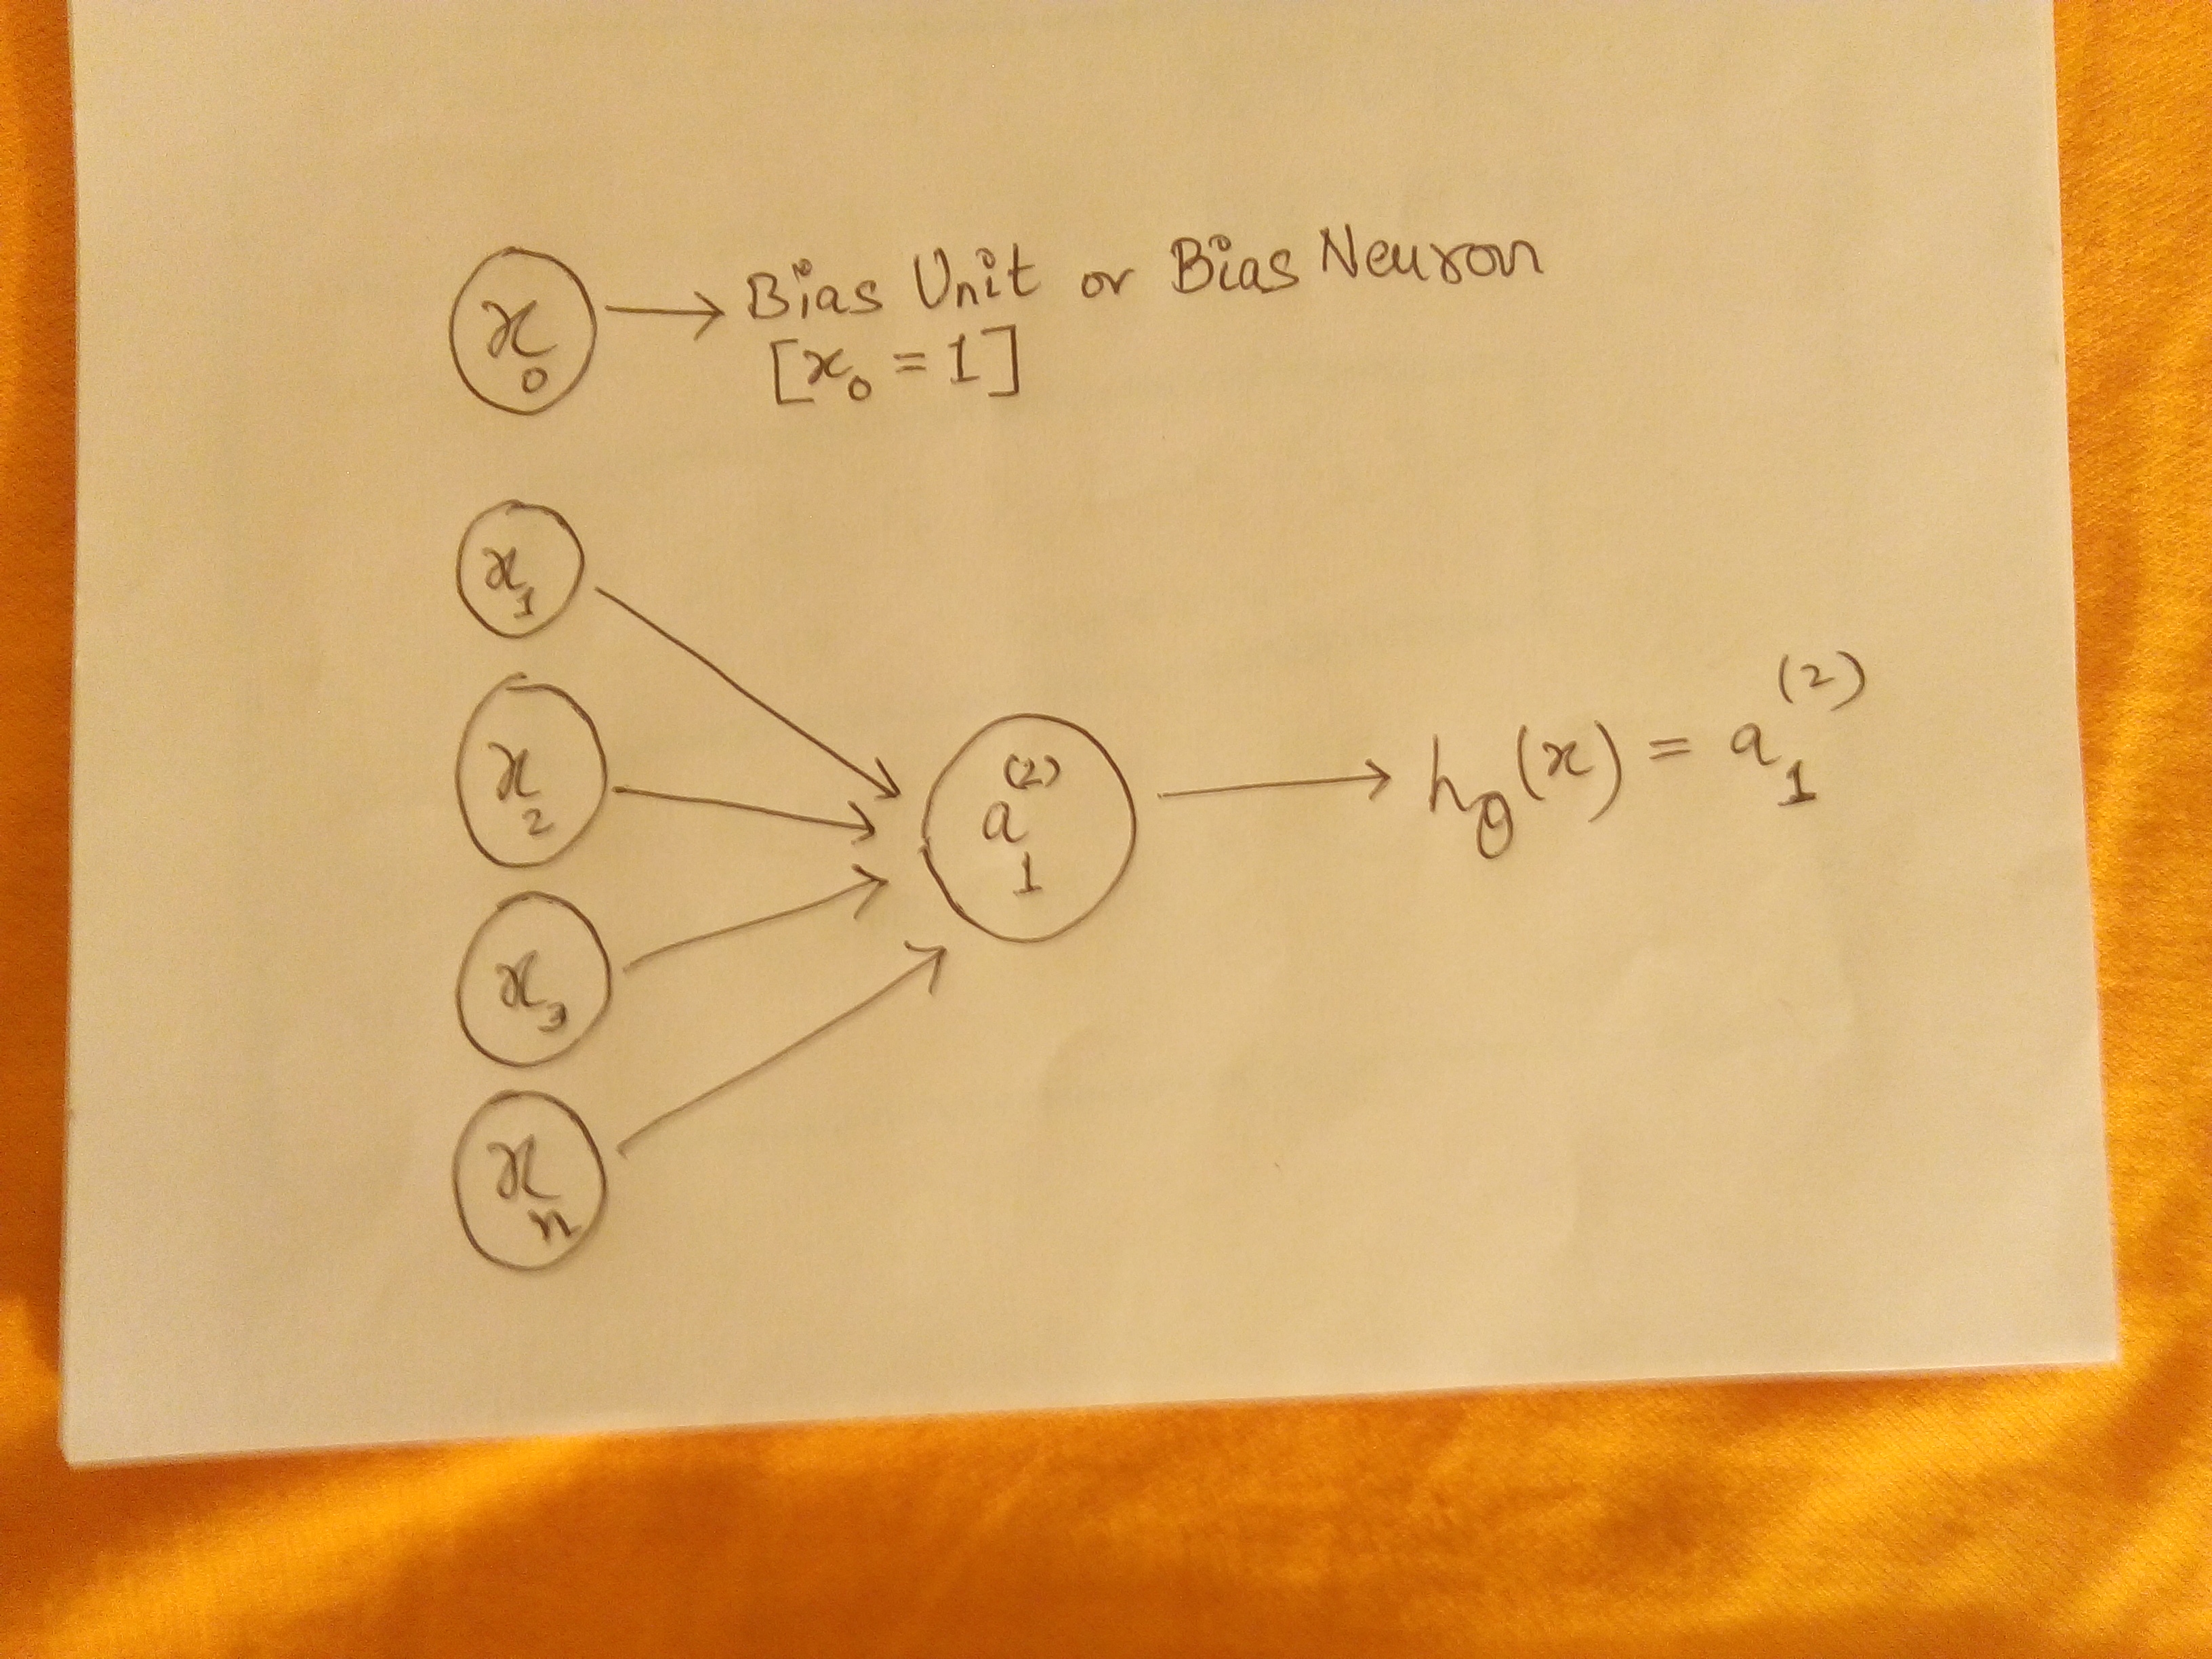 x₀ → Bias Unit or Bias Neuron
[x₀ = 1]
x₁
x₂
a₁⁽²⁾ → h_θ(x) = a₁⁽²⁾
x₃
xₙ